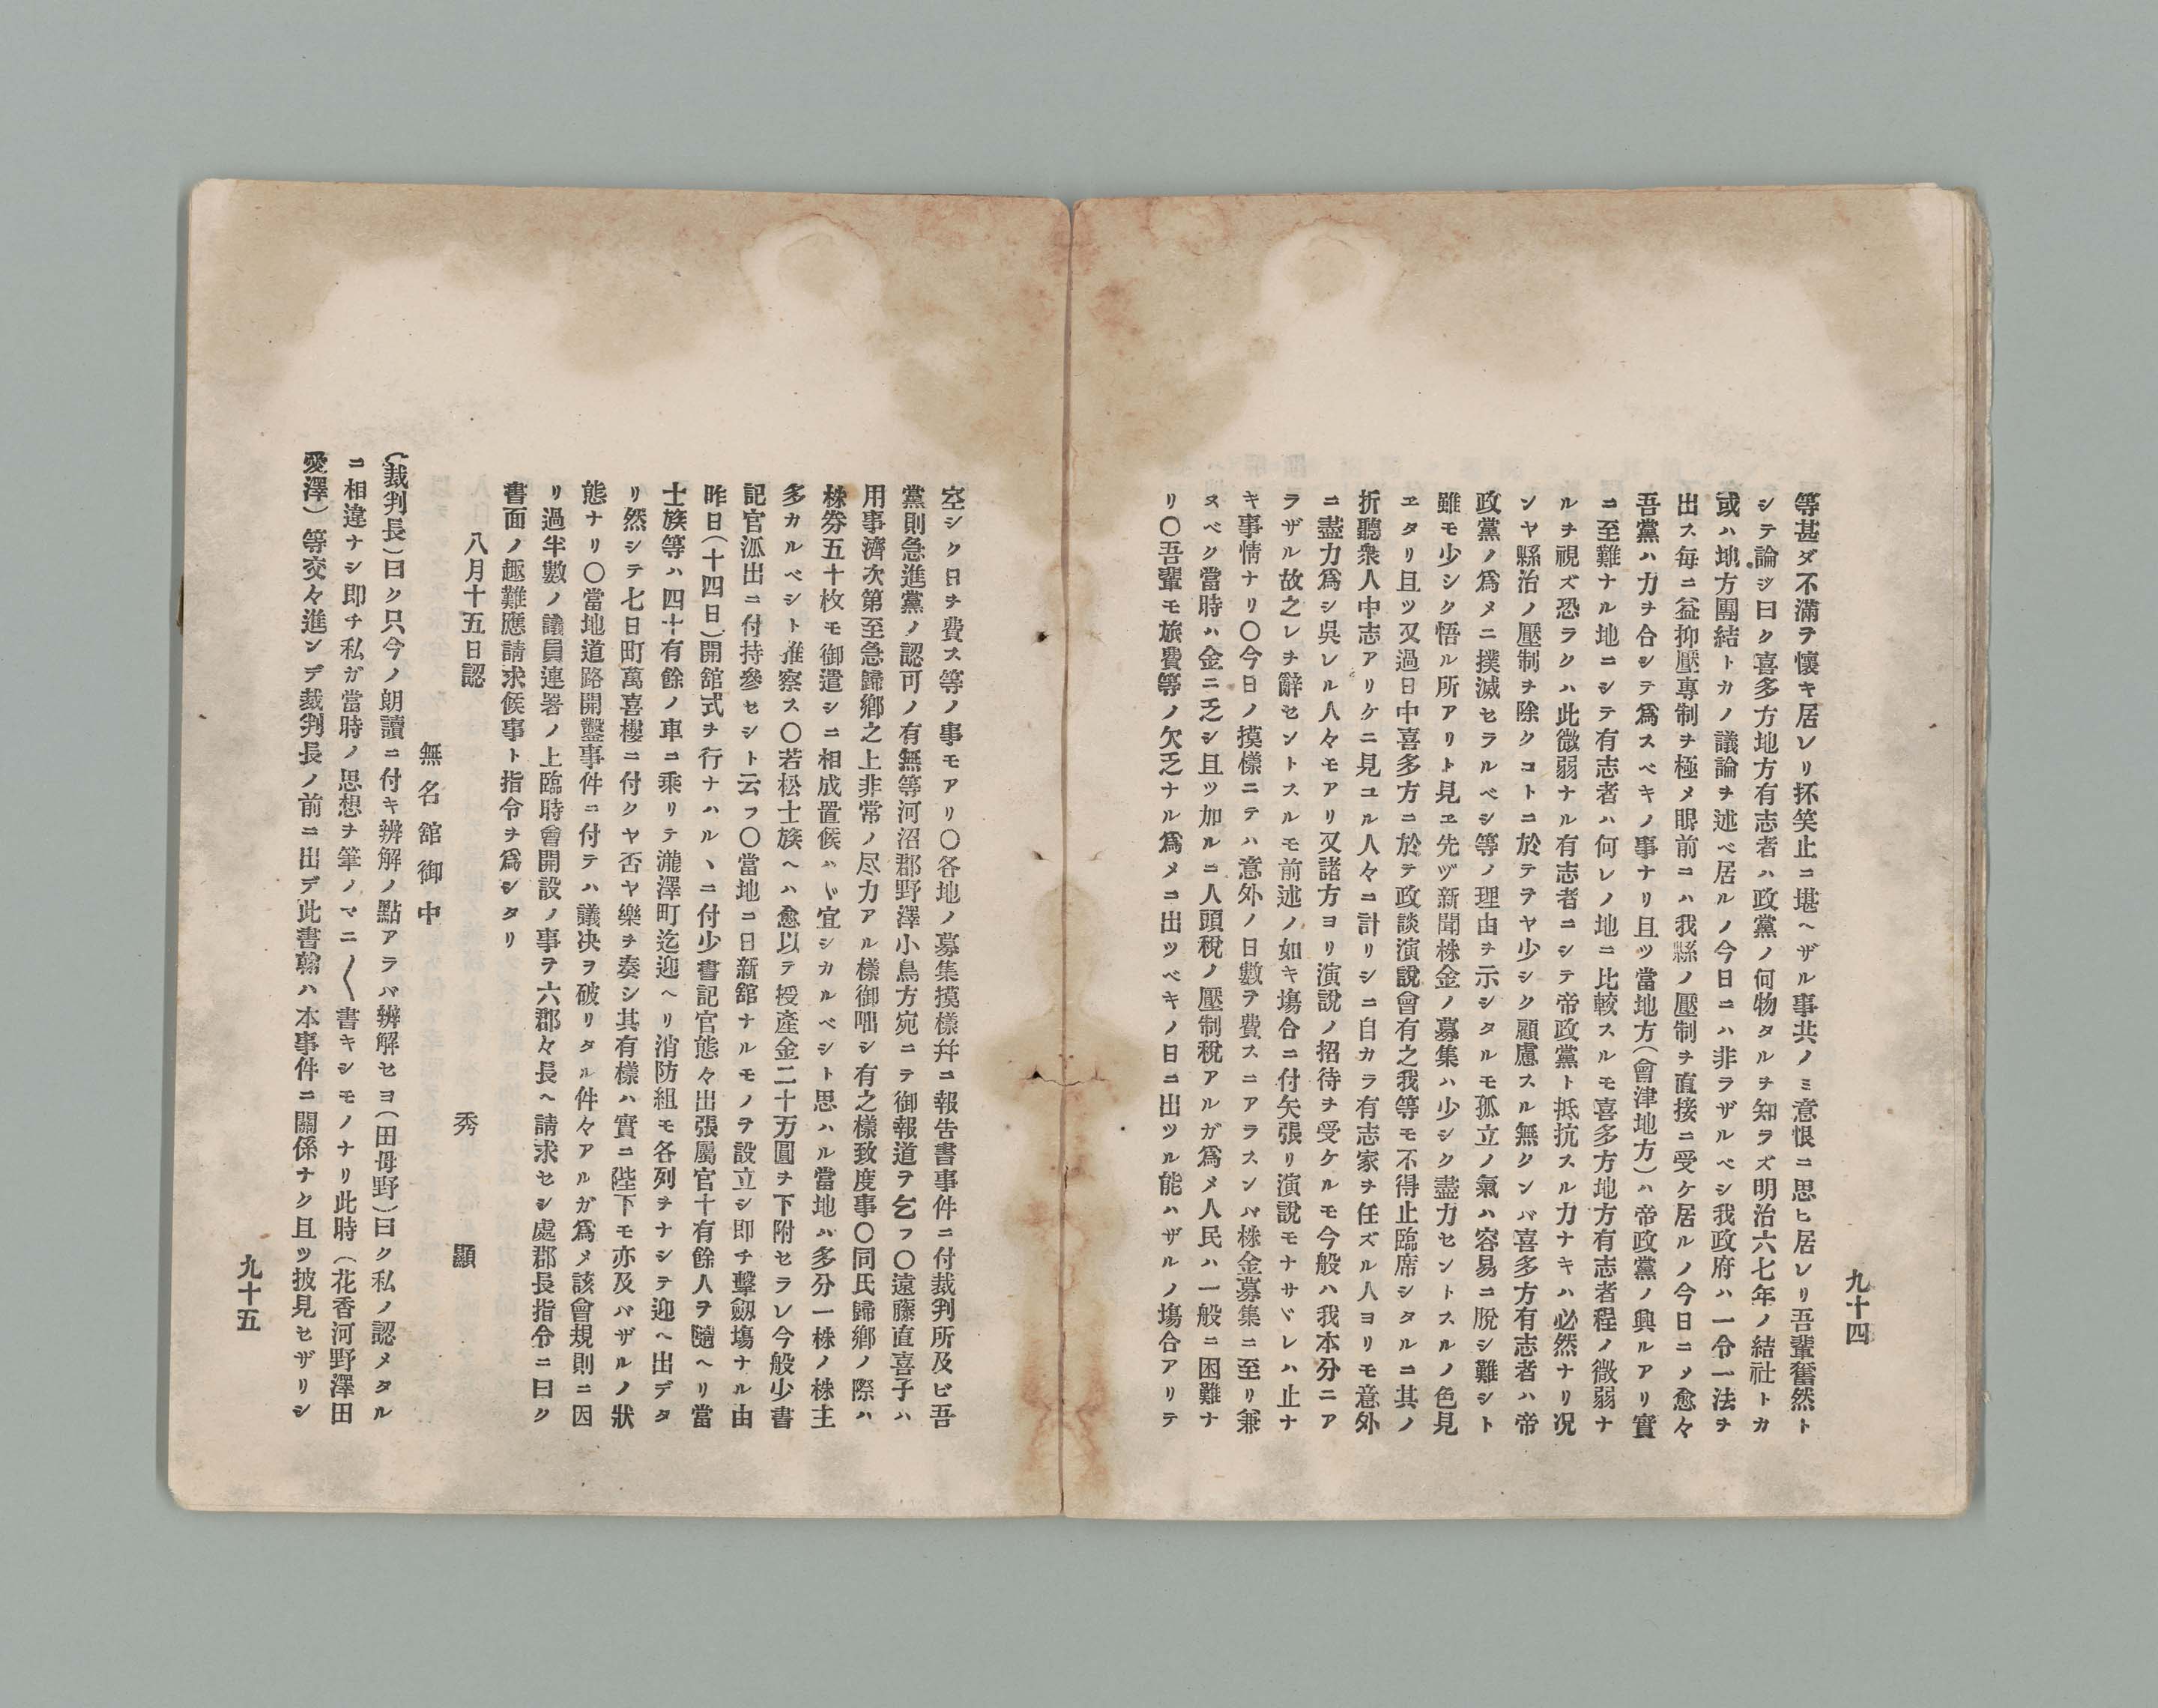 九十四
等甚ダ不滿ヲ懷キ居レリ抔笑止ニ堪ヘザル事共ノミ意恨ニ思ヒ居レリ吾輩奮然ト
シテ論ジ曰ク喜多方地方有志者ハ政黨ノ何物タルヲ知ラズ明治六七年ノ結社トカ
或ハ地方團結トカノ議論ヲ述ベ居ルノ今日ニハ非ラザルベシ我政府ハ一令一法ヲ
出ス毎ニ益抑壓專制ヲ極メ眼前ニハ我縣ノ壓制ヲ直接ニ受ケ居ルノ今日ニノ愈々
吾黨ハ力ヲ合シテ爲スベキノ事ナリ且ツ當地方(會津地方)ハ帝政黨ノ興ルアリ實
ニ至難ナル地ニシテ有志者ハ何レノ地ニ比較スルモ喜多方地方有志者程ノ微弱ナ
ルヲ視ズ恐ラクハ此微弱ナル有志者ニシテ帝政黨ト抵抗スル力ナキハ必然ナリ况
ンヤ縣治ノ壓制ヲ除クコトニ於テヲヤ少シク顧慮スル無クンバ喜多方有志者ハ帝
政黨ノ爲メニ撲滅セラルベシ等ノ理由ヲ示シタルモ孤立ノ氣ハ容易ニ脫シ難シト
雖モ少シク悟ル所アリト見ヱ先ヅ新聞株金ノ募集ハ少シク盡力セントスルノ色見
ヱタリ且ツ又過日中喜多方ニ於テ政談演說會有之我等モ不得止臨席シタルニ其ノ
折聽衆人中志アリケニ見ユル人々ニ計リシニ自カラ有志家ヲ任ズル人ヨリモ意外
ニ盡力爲シ吳レル人々モアリ又諸方ヨリ演說ノ招待ヲ受ケルモ今般ハ我本分ニア
ラザル故之レヲ辭セントスルモ前述ノ如キ塲合ニ付矢張リ演說モナサヾレハ止ナ
キ事情ナリ〇今日ノ摸樣ニテハ意外ノ日數ヲ費スニアラスンバ株金募集ニ至リ兼
ヌベク當時ハ金ニ乏シ且ツ加ルニ人頭稅ノ壓制稅アルガ爲メ人民ハ一般ニ困難ナ
リ〇吾輩モ旅費等ノ欠乏ナル爲メコ出ツベキノ日ニ出ツル能ハザルノ塲合アリテ
空シク日ヲ費ス等ノ事モアリ〇各地ノ募集摸樣幷ニ報告書事件ニ付裁判所及ビ吾
黨則急進黨ノ認可ノ有無等河沼郡野澤小島方宛ニテ御報道ヲ乞フ〇遠藤直喜子ハ
用事濟次第至急歸鄕之上非常ノ尽力アル樣御咄シ有之樣致度事〇同氏歸鄕ノ際ハ
株劵五十枚モ御遣シニ相成置候ハヾ宜シカルベシト思ハル當地ハ多分一株ノ株主
多カルベシト推察ス〇若松士族ヘハ愈以テ授產金二十万圓ヲ下附セラレ今般少書
記官派出ニ付持參セシト云フ〇當地ニ日新舘ナルモノヲ設立シ即チ擊劔塲ナル由
昨日(十四日)開舘式ヲ行ナハル丶ニ付少書記官態々出張屬官十有餘人ヲ隨ヘリ當
士族等ハ四十有餘ノ車コ乘リテ瀧澤町迄迎ヘリ消防組モ各列ヲナシテ迎ヘ出デタ
リ然シテ七日町萬喜樓ニ付クヤ否ヤ樂ヲ奏シ其有樣ハ實ニ陛下モ亦及バザルノ狀
態ナリ〇當地道路開鑿事件ニ付テハ議决ヲ破リタル件々アルガ爲メ該會規則ニ因
リ過半數ノ議員連署ノ上臨時會開設ノ事ヲ六郡々長ヘ請求セシ處郡長指令ニ曰ク
書面ノ趣難應請求候事ト指令ヲ爲シタリ
八月十五日認
秀顯
無名舘御中
(裁判長)曰ク只今ノ朗讀ニ付キ辨解ノ點アラバ辨解セヨ(田母野)曰ク私ノ認メタル
ニ相違ナシ即チ私ガ當時ノ思想ヲ筆ノマニ〱書キシモノナリ此時(花香河野澤田
愛澤)等交々進ンデ裁判長ノ前ニ出デ此書翰ハ本事件ニ關係ナク且ツ披見セザリシ
九十五